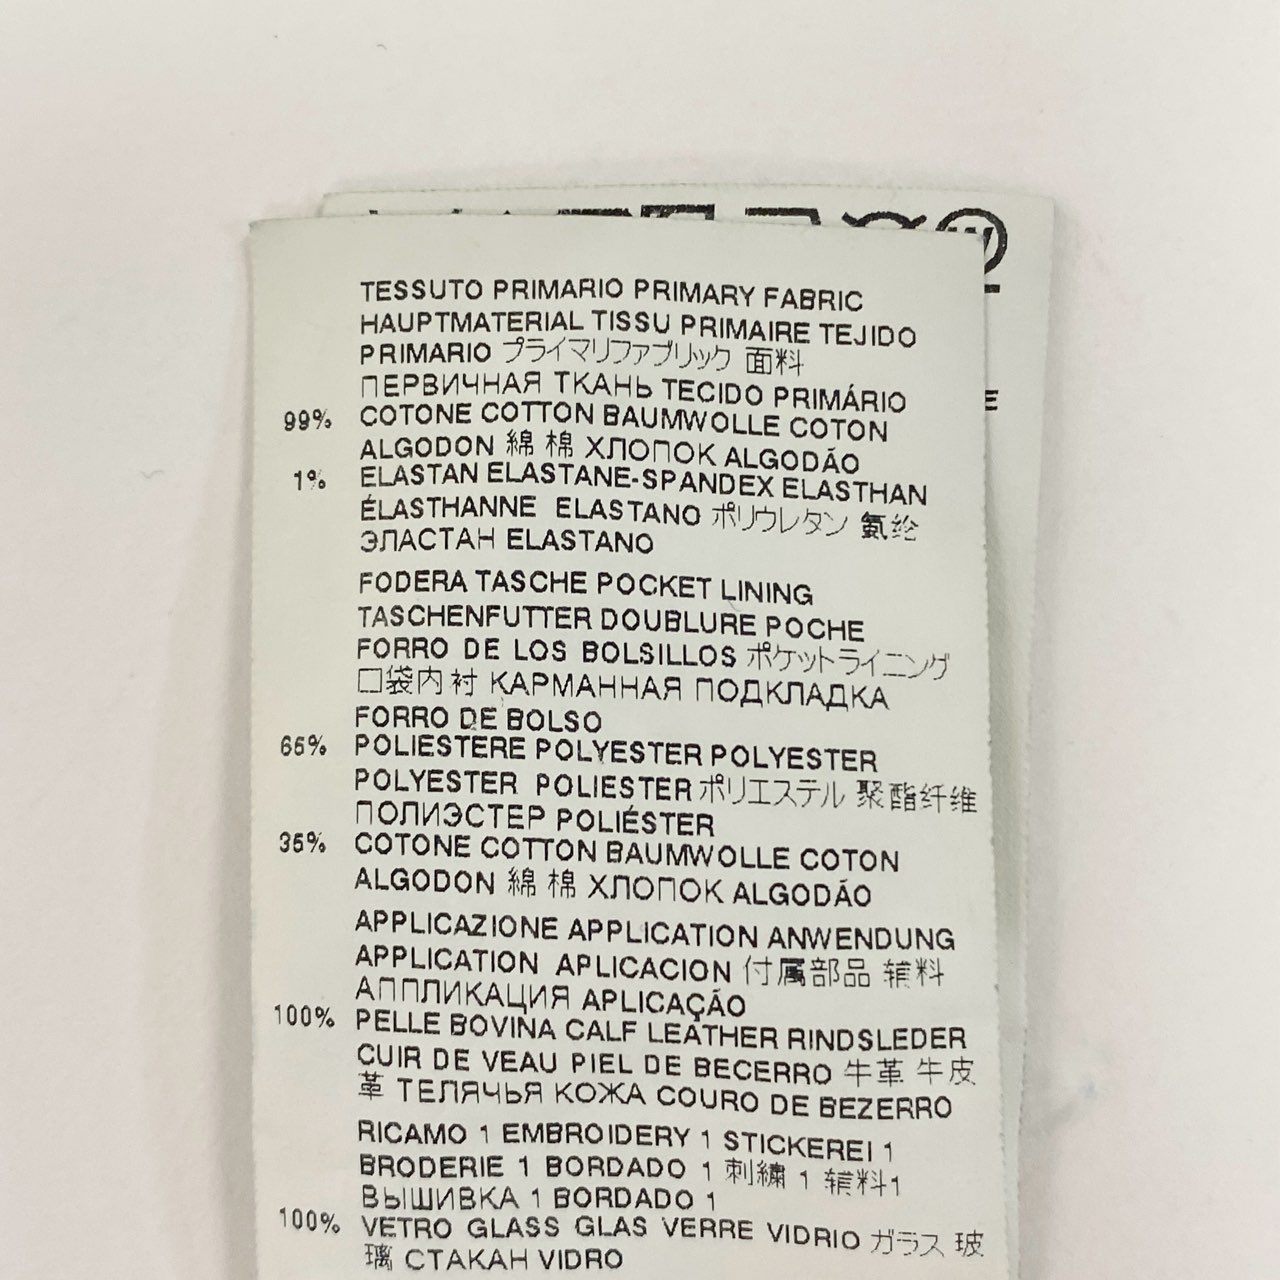 TESSUTO PRIMARIO PRIMARY FABRIC
HAUPTMATERIAL TISSU PRIMAIRE TEJIDO
PRIMARIO プライマリファブリック 面料
ПЕРВИЧНАЯ ТКАНЬ TECIDO PRIMÁRIO
99% COTONE COTTON BAUMWOLLE COTON
ALGODON 綿 棉 ХЛОПОК ALGODÃO
1% ELASTAN ELASTANE-SPANDEX ELASTHAN
ÉLASTHANNE ELASTANO ポリウレタン 氨纶
ЭЛАСТАН ELASTANO
FODERA TASCHE POCKET LINING
TASCHENFUTTER DOUBLURE POCHE
FORRO DE LOS BOLSILLOS ポケットライニング
口袋内衬 КАРМАННАЯ ПОДКЛАДКА
FORRO DE BOLSO
65% POLIESTERE POLYESTER POLYESTER
POLYESTER POLIESTER ポリエステル 聚酯纤维
ПОЛИЭСТЕР POLIÉSTER
35% COTONE COTTON BAUMWOLLE COTON
ALGODON 綿 棉 ХЛОПОК ALGODÃO
APPLICAZIONE APPLICATION ANWENDUNG
APPLICATION APLICACION 付属部品 辅料
АППЛИКАЦИЯ APLICAÇÃO
100% PELLE BOVINA CALF LEATHER RINDSLEDER
CUIR DE VEAU PIEL DE BECERRO 牛革 牛皮
革 ТЕЛЯЧЬЯ КОЖА COURO DE BEZERRO
RICAMO 1 EMBROIDERY 1 STICKEREI 1
BRODERIE 1 BORDADO 1 刺繍 1 辅料1
ВЫШИВКА 1 BORDADO 1
100% VETRO GLASS GLAS VERRE VIDRIO ガラス 玻
璃 СТАКАН VIDRO
W
E